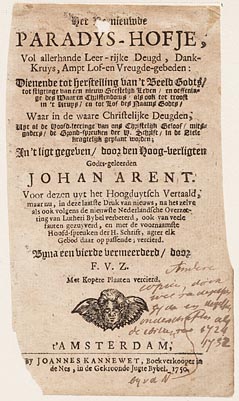 Het Vernieuwde
PARADYS-HOFJE,
Vol allerhande Leer-rijke Deugd, Dank-
Kruys, Ampt Lof-en Vreugde-gebeden:
Dienende tot herstelling van 't Beeld Godts,
tot stigtinge van een nieuw Geestelijk Leven / en oeffenin-
ge des Waaren Christendoms / als ook tot troost
in 't Kruys / en tot Lof des Naams Godes /
Waar in de waare Christelijke Deugden,
Uyt de Hooftleeringe van ons Christelijk Geloof /
godes / de Grond-spreuken der H. Schrift / in de Ziele
kragtelijk geplant worden;
In 't ligt gegeven / door den Hoog-verligten
Godts-geleerden
JOHAN ARENT.
Voor dezen uyt het Hoogduytsch Vertaald,
maar nu, in deze laatste Druk van nieuws, na het zelve
als ook volgens de nieuwste Nederlandsche Overzet-
ting van Luther Bybel verbeterd, ook van veele
fauten gezuyverd, en met de voornaamste
Hoofd-spreuken der H. Schrift, agter elk
Gebod daar op passende; vercierd.
Byna een vierde vermeerderd / door
F. V. Z.
Met Kopere Plaaten vercierd.
Andere
door
en
1724
1732
t'AMSTERDAM,
By JOANNES KANNEWET, Boekverkooper in
de Nes, in de Gekroonde Jugte Bybel, 1750.